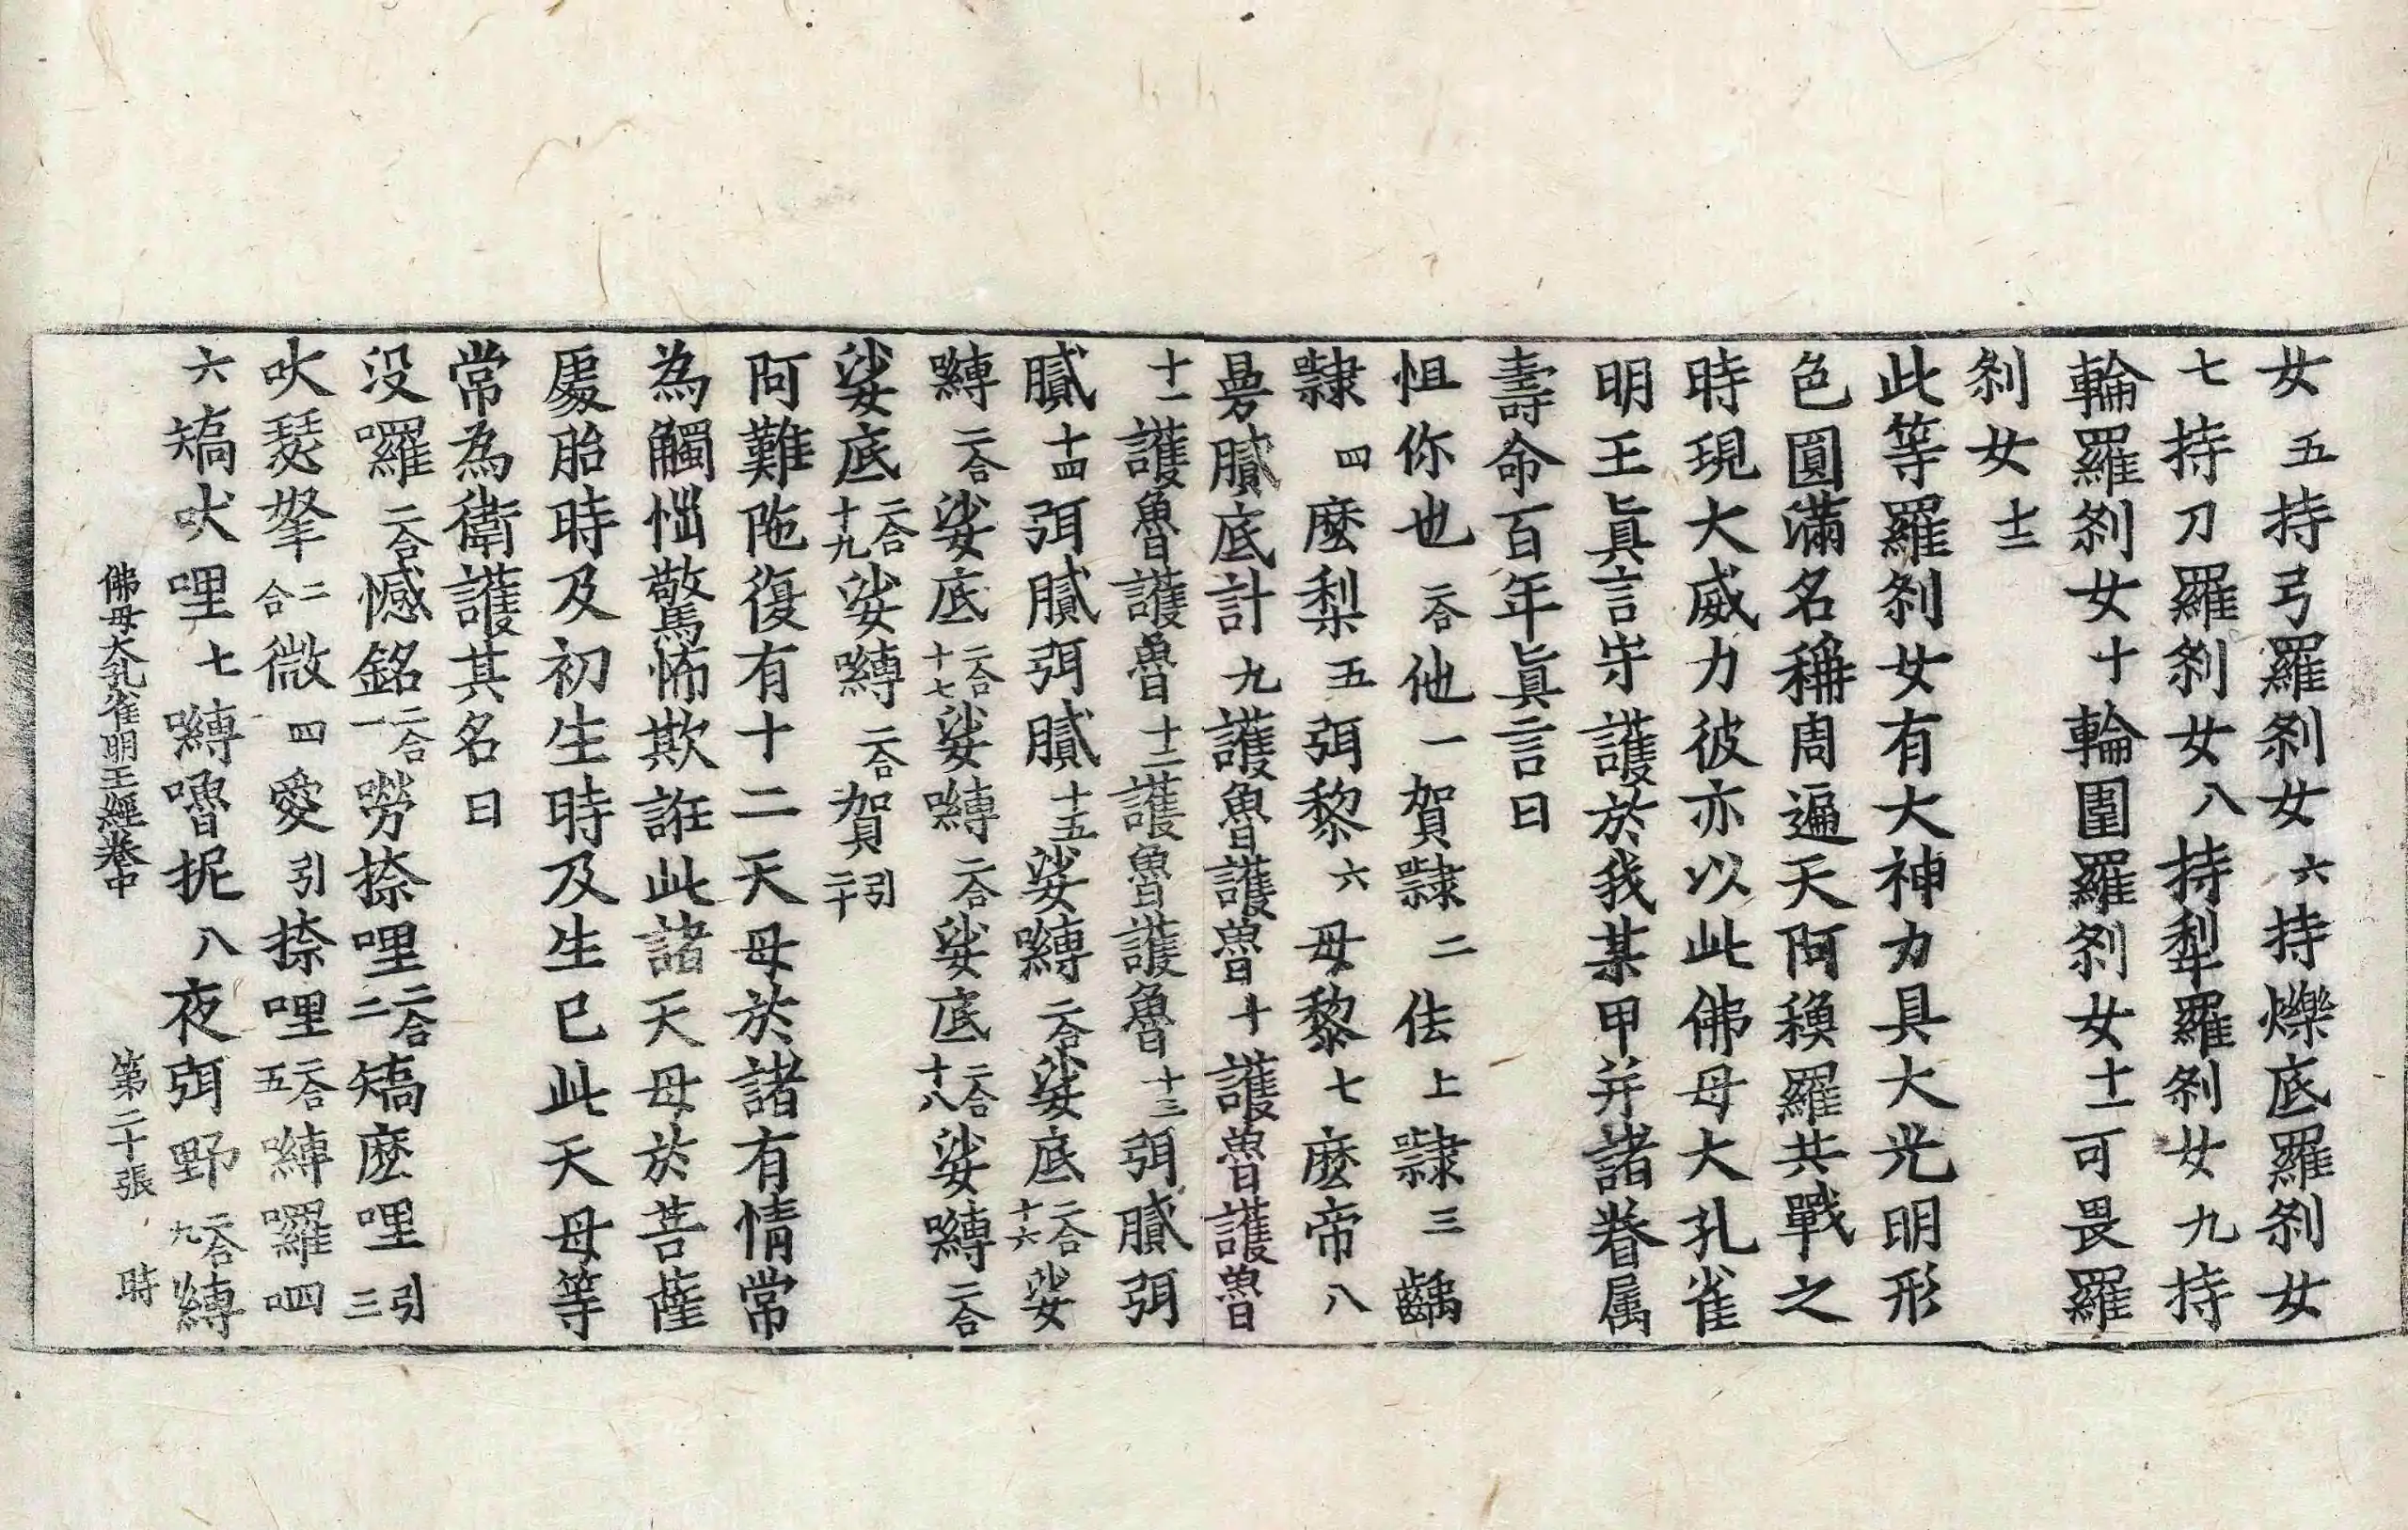 女五持弓羅剎女六持爍底羅剎女
七持刀羅剎女八持犁羅剎女九持
輪羅剎女十輪圍羅剎女十一可畏羅
剎女十二
此等羅剎女有大神力具大光明形
色圓滿名稱周遍天阿穌羅共戰之
時現大威力彼亦以此佛母大孔雀
明王眞言守護於我某甲并諸眷属
壽命百年眞言曰
怛你也二合他一賀隸二佉上隸三齲
隸四麼梨五弭黎六母黎七麼帝八
曼膩底計九護魯護魯十護魯護魯
十一護魯護魯十二護魯護魯十三弭膩弭
膩十四弭膩弭膩十五娑嚩二合娑底二合十六娑
嚩二合娑底二合十七娑嚩二合娑底二合十八娑嚩二合
娑底二合十九娑嚩二合賀引二十
阿難陁復有十二天母於諸有情常
為觸惱驚怖欺誑此諸天母於菩薩
處胎時及初生時及生已此天母等
常為衛護其名曰
没囉二合憾銘二合一嘮捺哩二合二矯麽哩引三
吠瑟拏二合微四愛引捺哩二合五嚩囉呬
六矯吠哩七嚩嚕抳八夜弭野二合九嚩
佛母大孔雀明王經卷中 第二十張 時